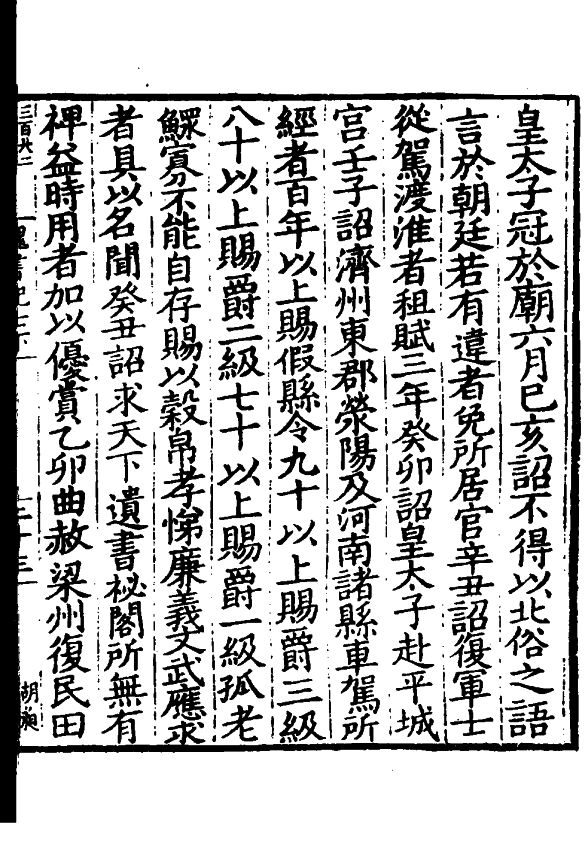 皇太子冠於廟六月己亥詔不得以北俗之語
言於朝廷若有違者免所居官辛丑詔復軍士
從駕渡淮者租賦三年癸卯詔皇太子赴平城
宮壬子詔濟州東郡滎陽及河南諸縣車駕所
經者百年以上賜假縣令九十以上賜爵三級
八十以上賜爵二級七十以上賜爵一級孤老
鰥寡不能自存賜以穀帛孝悌廉義文武應求
者具以名聞癸丑詔求天下遺書祕閣所無有
裨益時用者加以優賞乙卯曲赦梁州復民田